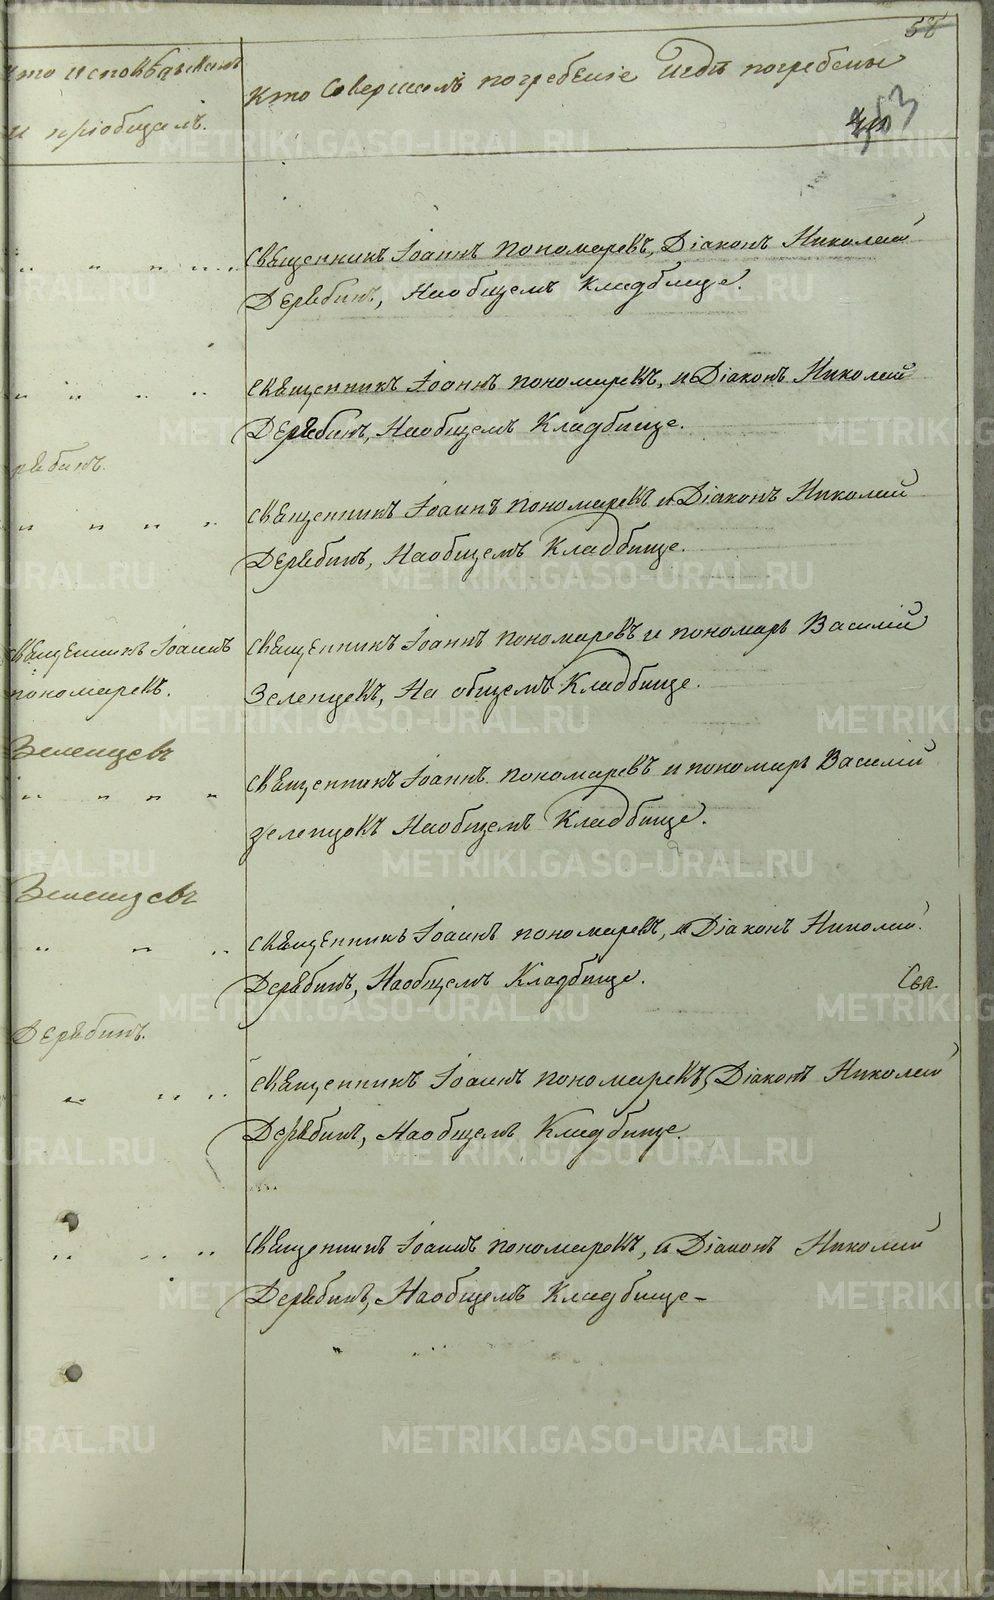 58
Кто исповѣдывалъ
и пріобщалъ.
Кто Совершалъ погребеніе и гдѣ погребены
53
Священникъ Іоаннъ Пономаревъ, Діаконъ Николай
Дерябинъ, На общемъ Кладбище.
Священникъ Іоаннъ Пономаревъ, и Діаконъ Николай
Дерябинъ, На общемъ Кладбище.
рябинъ.
Священникъ Іоаннъ Пономаревъ и Діаконъ Николай
Дерябинъ, На общемъ Кладбище.
Священникъ Іоаннъ
Пономаревъ.
Священникъ Іоаннъ Пономаревъ и пономарь Василій
Зеленцовъ, На общемъ Кладбище.
Зеленцевъ
Священникъ Іоаннъ Пономаревъ и пономарь Василій
Зеленцовъ На общемъ Кладбище.
Зеленцевъ
Священникъ Іоаннъ Пономаревъ, и Діаконъ Николай
Дерябинъ, На общемъ Кладбище.
Свя
Дерябинъ.
Священникъ Іоаннъ Пономаревъ, Діаконъ Николай
Дерябинъ, На общемъ Кладбище.
Священникъ Іоаннъ Пономаревъ, и Діаконъ Николай
Дерябинъ, На общемъ Кладбище
METRIKI.GASO-URAL.RU